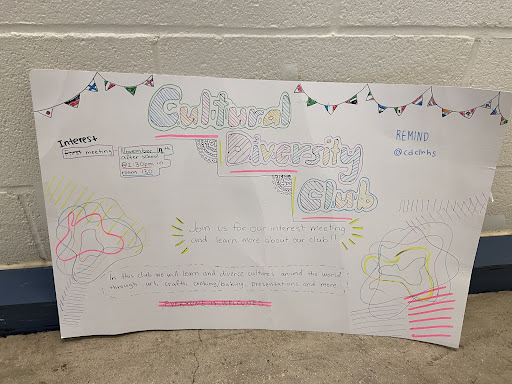 Cultural
Diversity
Club
Interest
meeting
November
after school
@2:30pm in
room 130
REMIND
@cdclnhs
Join us for our interest meeting
and learn more about our club!!
In this club we will learn and diverse cultures around the world
through art, crafts, cooking/baking, presentations and more
Everyone is welcome